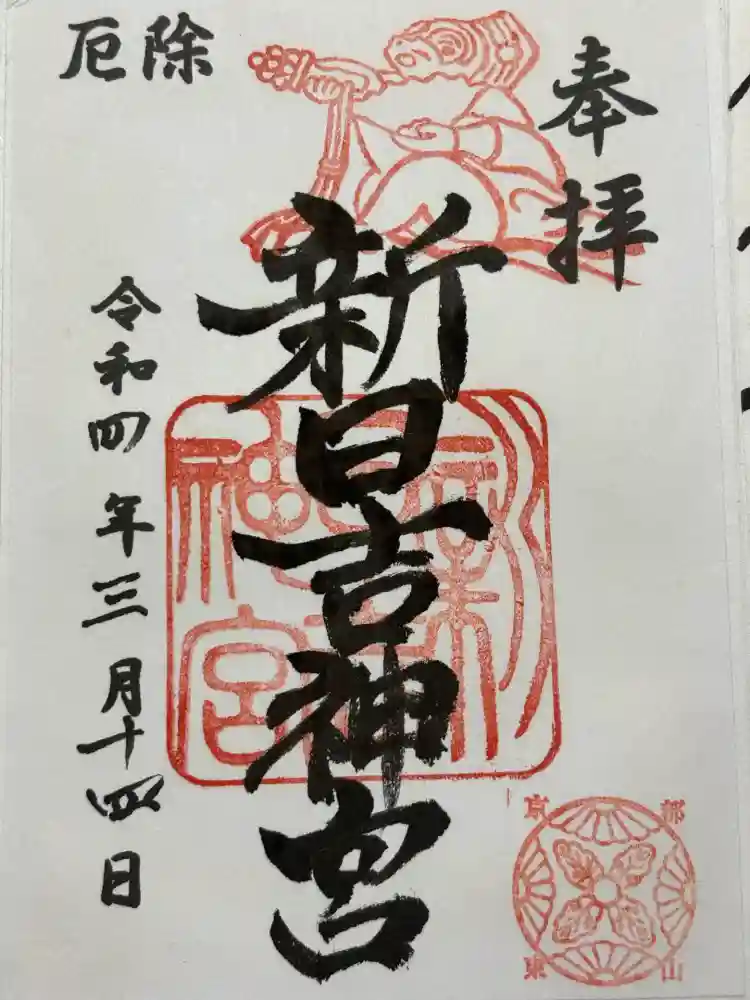 奉拝
厄除
新日吉神宮
令和四年三月十四日
新日吉神宮
京都
東山